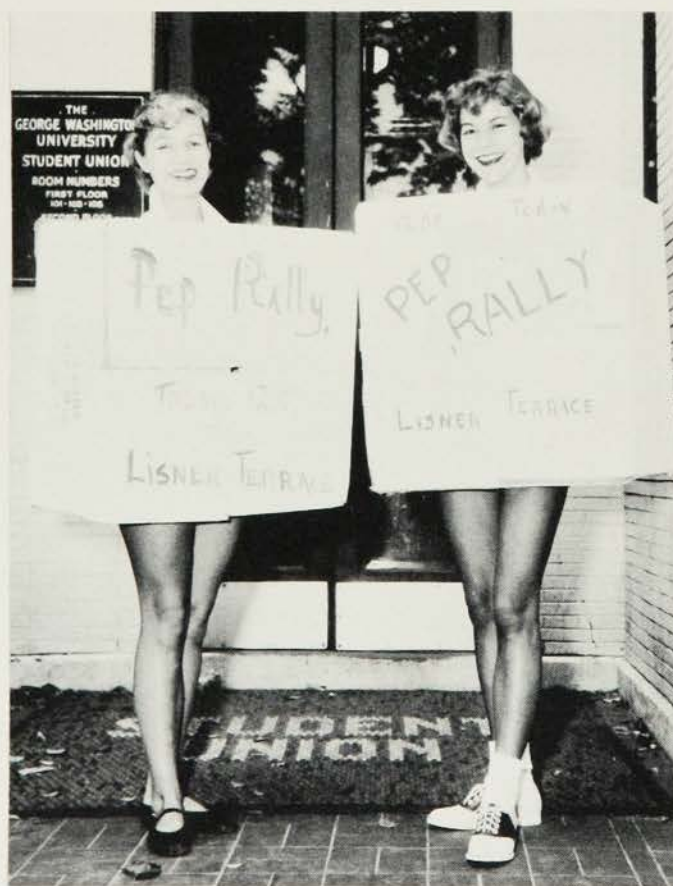 THE
GEORGE WASHINGTON
UNIVERSITY
STUDENT UNION
ROOM NUMBERS
FIRST FLOOR
101-103-105
SECOND FLOOR
Pep Rally
LISNER TERRACE
PEP
RALLY
LISNER TERRACE
STUDENT
UNION